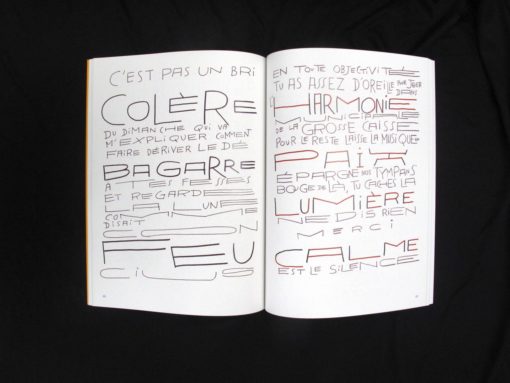 C'EST PAS UN BRI
COLÈRE
DU DIMANCHE QUI VA
M'EXPLIQUER COMENT
FAIRE DÉRIVER LE DÉ
BAGARRE
A TES FESSES
ET REGARDE
LA LUNE
DISAIT
CON
FEU
CIUS
EN TOUTE OBJECTIVITÉ
TU AS ASSEZ D'OREILLE POUR JOUER
DANS
L'HARMONIE
MUNICIPALE
DE LA GROSSE CAISSE
POUR LE RESTE LAISSE LA MUSIQUE
PAIX
ÉPARGNE NOS TYMPANS
BOUGE DE LÀ, TU CACHES LA
LUMIÈRE
NE DIS RIEN
MERCI
CALME
EST LE SILENCE